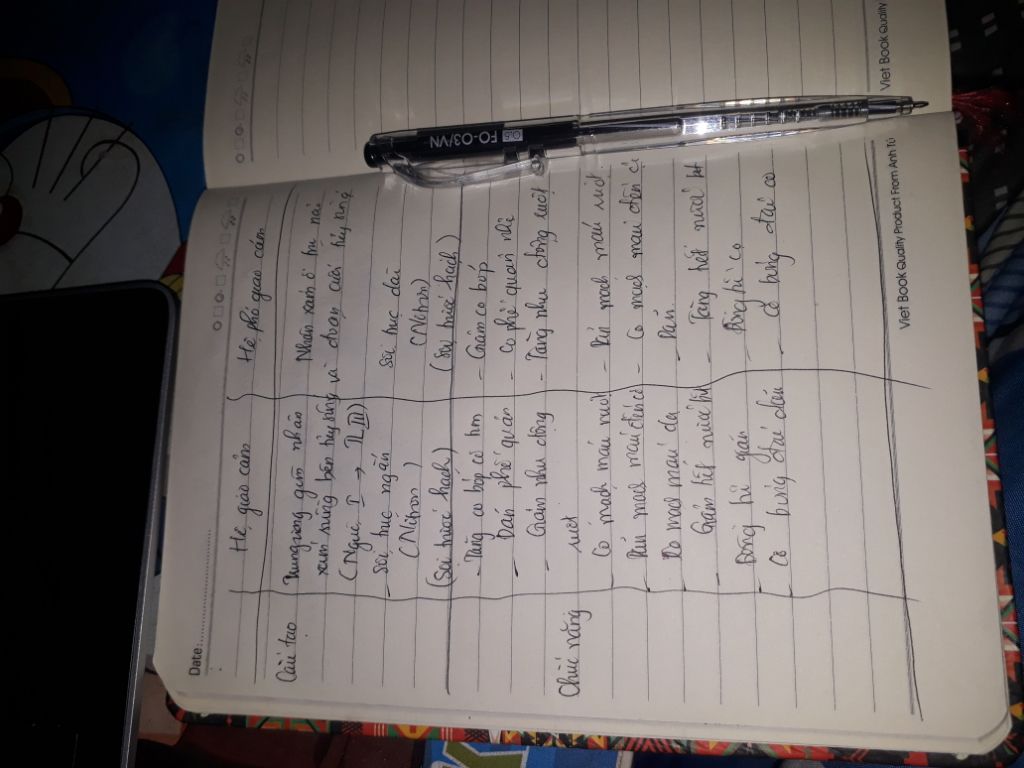 Date:
Hệ giao cảm Hệ phó giao cảm
Cấu tạo Trung ương gồm nhân Nhân xám ở trụ não
xám sừng bên tủy sống và đoạn cuối tủy sống
(Người I → LIII)
Sợi trục ngắn Sợi trục dài
(Nơron) (Nơron)
(Sợi trước hạch) (Sợi trước hạch)
- Tăng co bóp cơ tim - Giảm co bóp
- Dãn phế quản - Co phế quản nhỏ
- Giảm nhu động - Tăng nhu động ruột
Chức năng ruột
Co mạch máu ruột - Dãn mạch máu ruột
Dãn mạch máu đến cơ - Co mạch máu đến cơ
Co mạch máu da - Dãn
Giảm tiết nước bọt - Tăng tiết nước bọt
Đồng tử giãn Đồng tử co
Cơ bóng đái dãn - cơ bóng đái co
Viet Book Quality Product From Anh Tú
Viet Book Quality
0.5 FO-03/VN